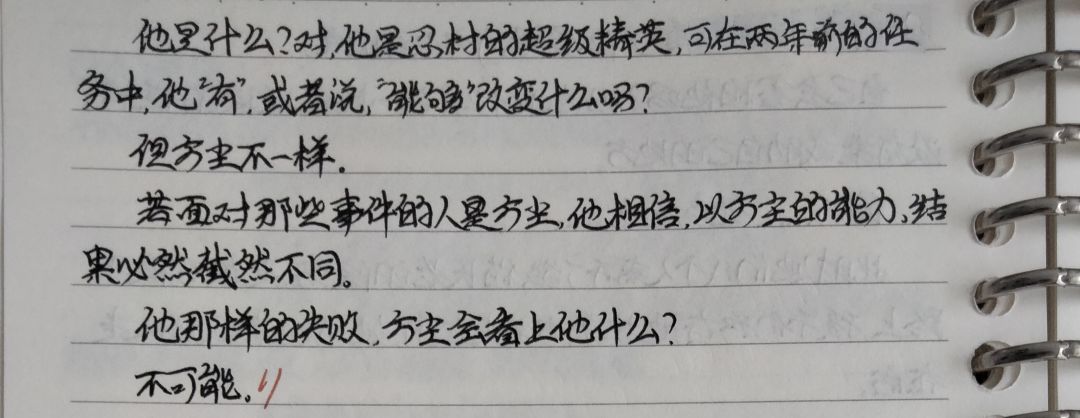 他是什么?对,他是忍村的超级精英,可在两年前的任
务中,他"有",或者说,"能够"改变什么吗?
但方尘不一样.
若面对那些事件的人是方尘,他相信,以方尘的能力,结
果必然截然不同。
他那样的失败,方尘会看上他什么?
不可能.